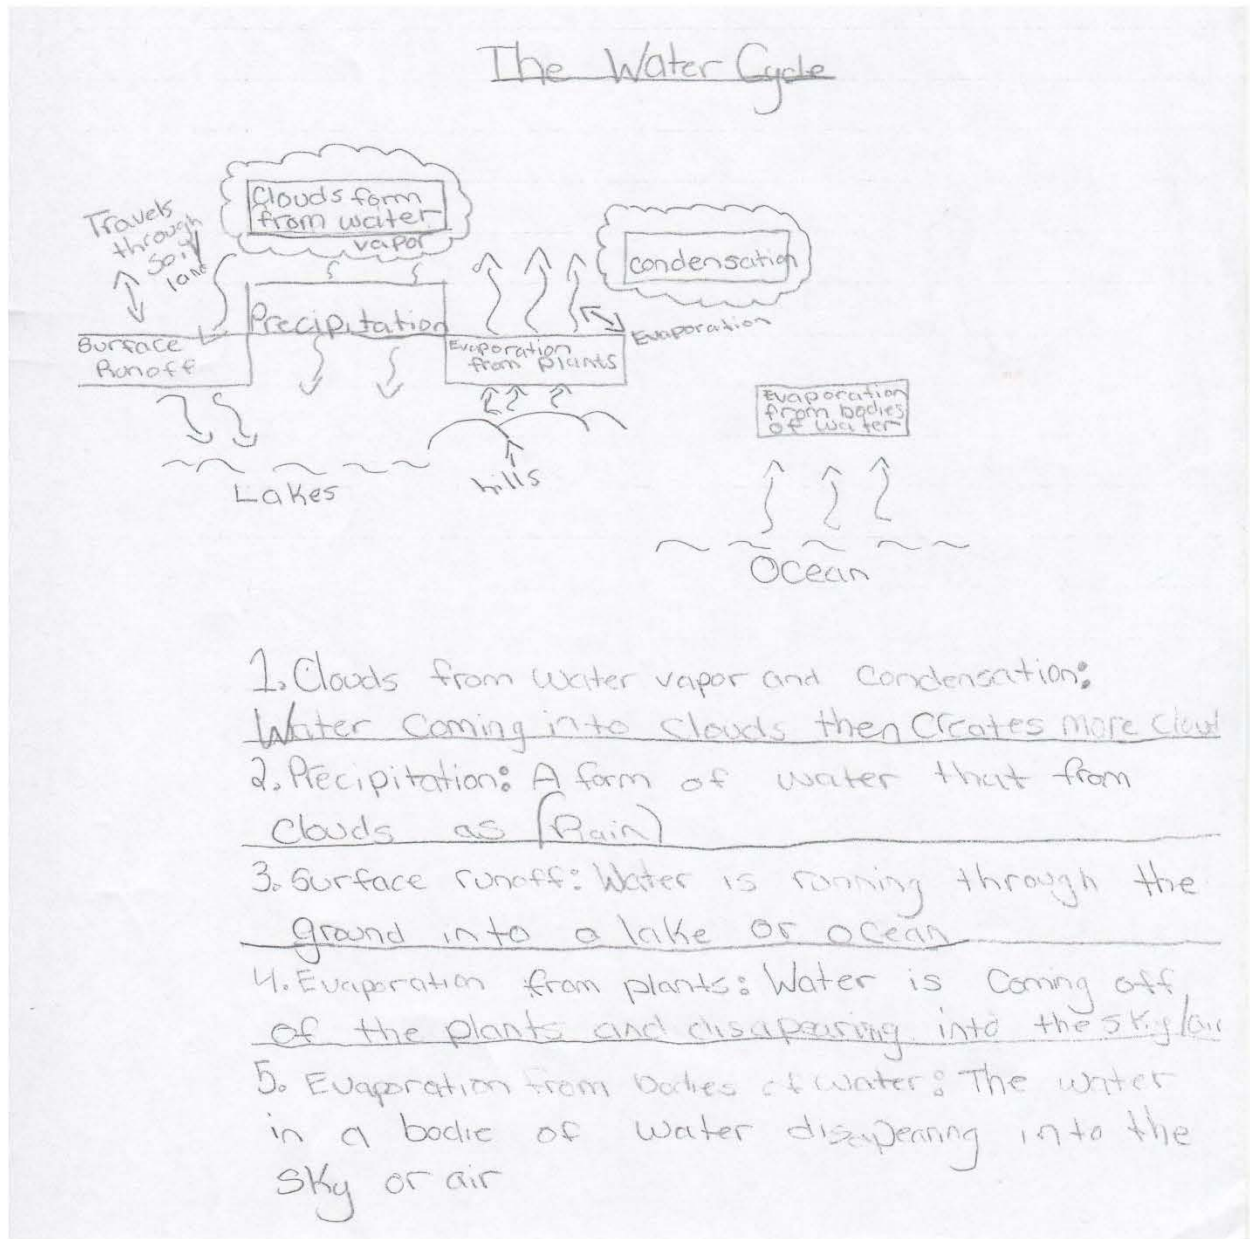 The Water Cycle
Clouds form
from water
vapor
Travels
through
soil/
land
condensation
Precipitation
Evaporation
Surface
Runoff
Evaporation
from Plants
Evaporation
from bodies
of water
Lakes
hills
Ocean
1. Clouds from water vapor and condensation:
Water Coming into Clouds then Creates more Cloud
2. Precipitation: A form of water that from
Clouds as (Rain)
3. Surface runoff: Water is running through the
ground into a lake or ocean
4. Evaporation from plants: Water is Coming off
of the plants and disapearing into the sky/air
5. Evaporation from bodies of water: The water
in a bodie of water disapearing into the
sky or air